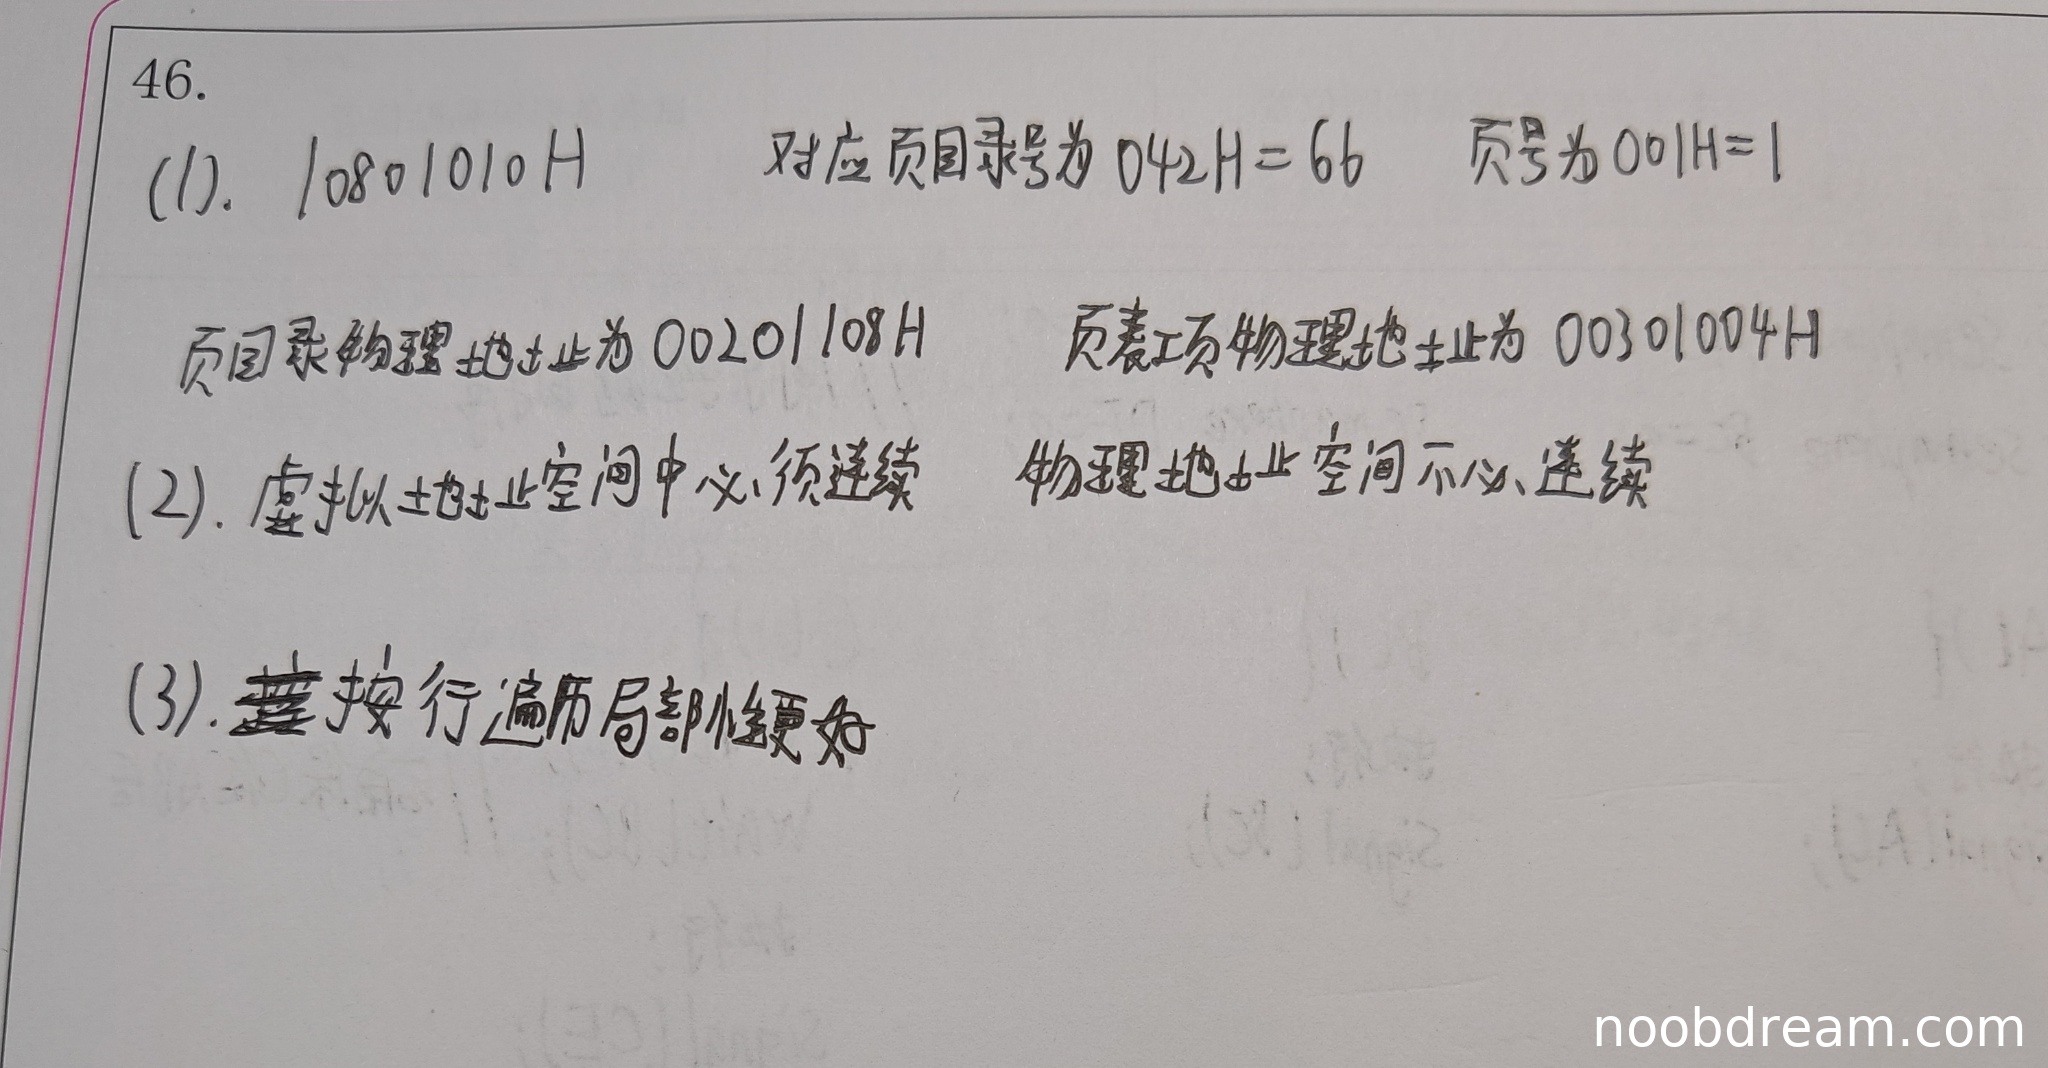 46.
(1). 10801010H 对应页目录号为042H=66 页号为001H=1
页目录物理地址为00201108H 页表项物理地址为00301004H
(2). 虚拟地址空间中必须连续 物理地址空间不必连续
(3). 按行遍历局部性更好
noobdream.com